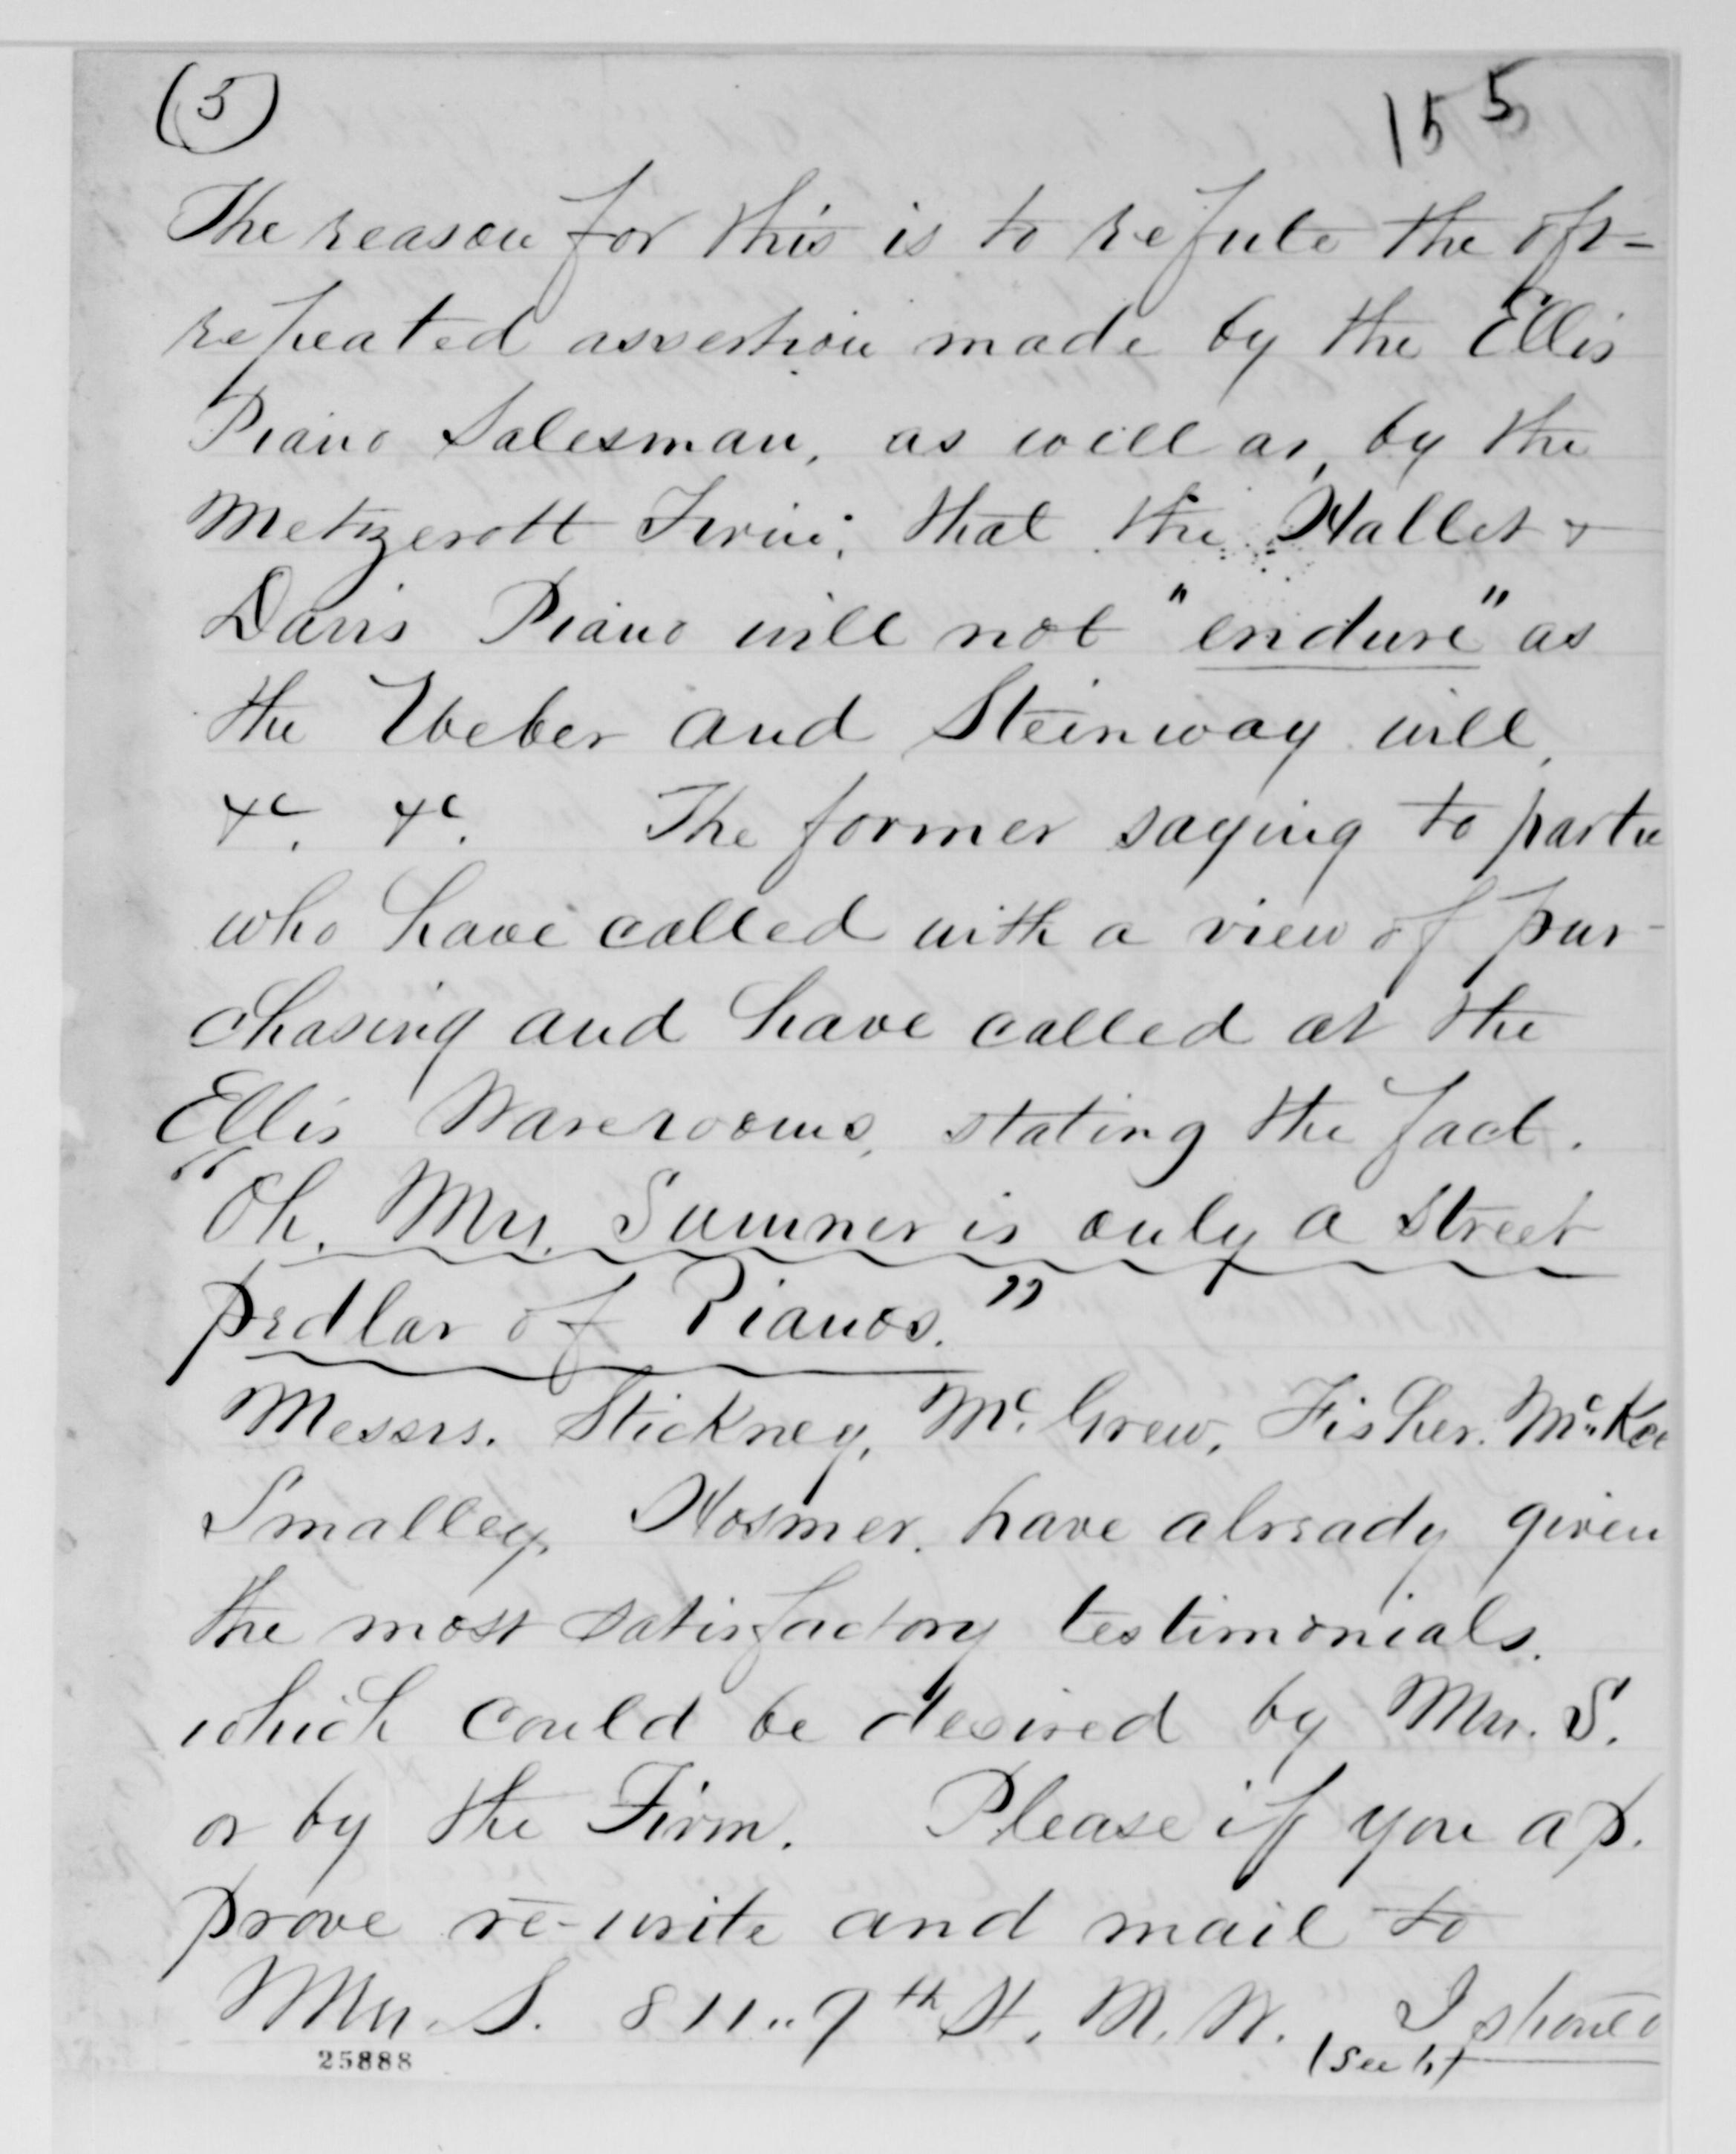 (5)
155
The reason for this is to refute the oft=
repeated assertion made by the Ellis
Piano Salesman, as well as, by the
Metzerott Firm; that the Hallet &
Davis Piano will not "endure" as
the Weber and Steinway will,
&c. &c. The former saying to partie
who have called with a view of pur-
chasing and have called at the
Ellis Warerooms, stating the fact.
"Oh, Mrs. Sumner is only a street
pedlar of Pianos."
Messrs. Stickney, McGrew, Fisher, McKee
Smalley, Hosmer, have already given
the most satisfactory testimonials.
which could be desired by Mrs. S.
or by the Firm. Please if you ap-
prove re-write and mail to
Mrs. S. 811.. 9th St. N. W. I should
(See 6)
25888